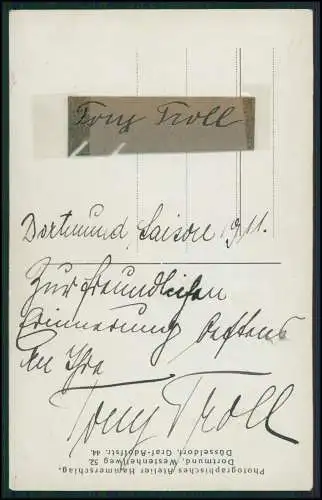 Tony Troll
Dortmund, Saison 1911.
Zur freundlichen
Erinnerung
An Ihre
Tony Troll
Photographisches Atelier Hammerschlag.
Dortmund, Westenhellweg 52.
Düsseldorf, Graf-Adolfstr. 44.